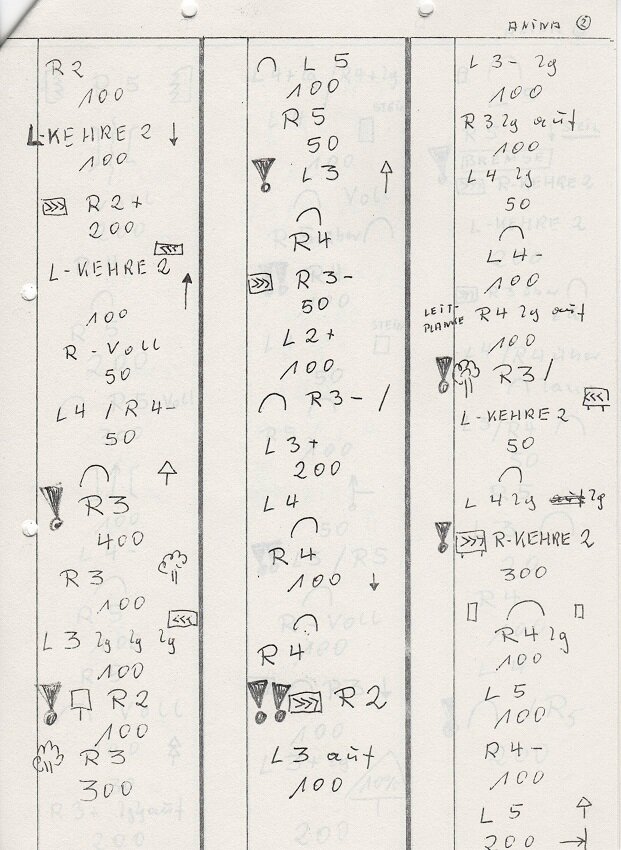 ANINA 2
R2
100
L-KEHRE 2 ↓
100
R2+
200
L-KEHRE 2
100
R-Voll
50
L4 / R4-
50
R3
400
R3
100
L3 lg lg lg
100
R2
100
R3
300
L5
100
R5
50
L3 ↑
R4
R3-
50
L2+
100
R3- /
L3+
200
L4
R4
100 ↓
R4
R2
L3 auf
100
L3- lg
100
R3 lg auf
100
L4 lg
50
L4-
100
LEIT-
PLANKE R4 lg auf
100
R3 /
L-KEHRE 2
50
L4 lg lg
R-KEHRE 2
300
R4 lg
100
L5
100
R4-
100
L5
200 →